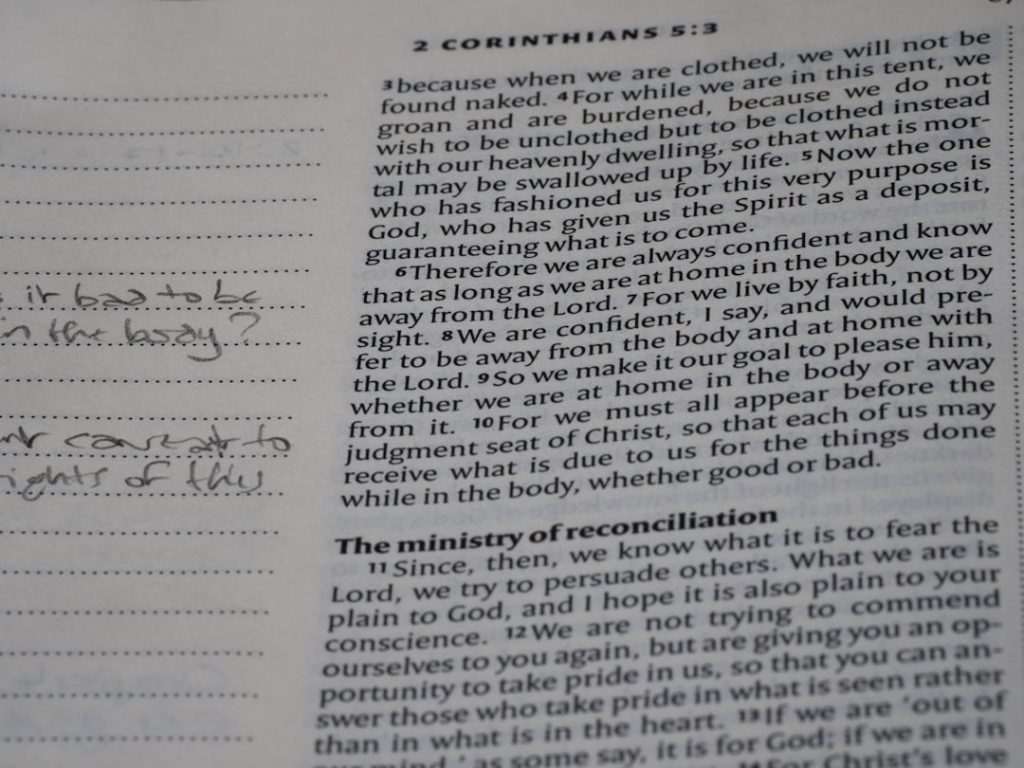 2 CORINTHIANS 5:3
3 because when we are clothed, we will not be
found naked. 4 For while we are in this tent, we
groan and are burdened, because we do not
wish to be unclothed but to be clothed instead
with our heavenly dwelling, so that what is mor-
tal may be swallowed up by life. 5 Now the one
who has fashioned us for this very purpose is
God, who has given us the Spirit as a deposit,
guaranteeing what is to come.
6 Therefore we are always confident and know
that as long as we are at home in the body we are
away from the Lord. 7 For we live by faith, not by
sight. 8 We are confident, I say, and would pre-
fer to be away from the body and at home with
the Lord. 9 So we make it our goal to please him,
whether we are at home in the body or away
from it. 10 For we must all appear before the
judgment seat of Christ, so that each of us may
receive what is due to us for the things done
while in the body, whether good or bad.
The ministry of reconciliation
11 Since, then, we know what it is to fear the
Lord, we try to persuade others. What we are is
plain to God, and I hope it is also plain to your
conscience. 12 We are not trying to commend
ourselves to you again, but are giving you an op-
portunity to take pride in us, so that you can an-
swer those who take pride in what is seen rather
than in what is in the heart. 13 If we are 'out of
our mind,' as some say, it is for God; if we are in
14 For Christ's love
it bad to be
in the body?
to
of this